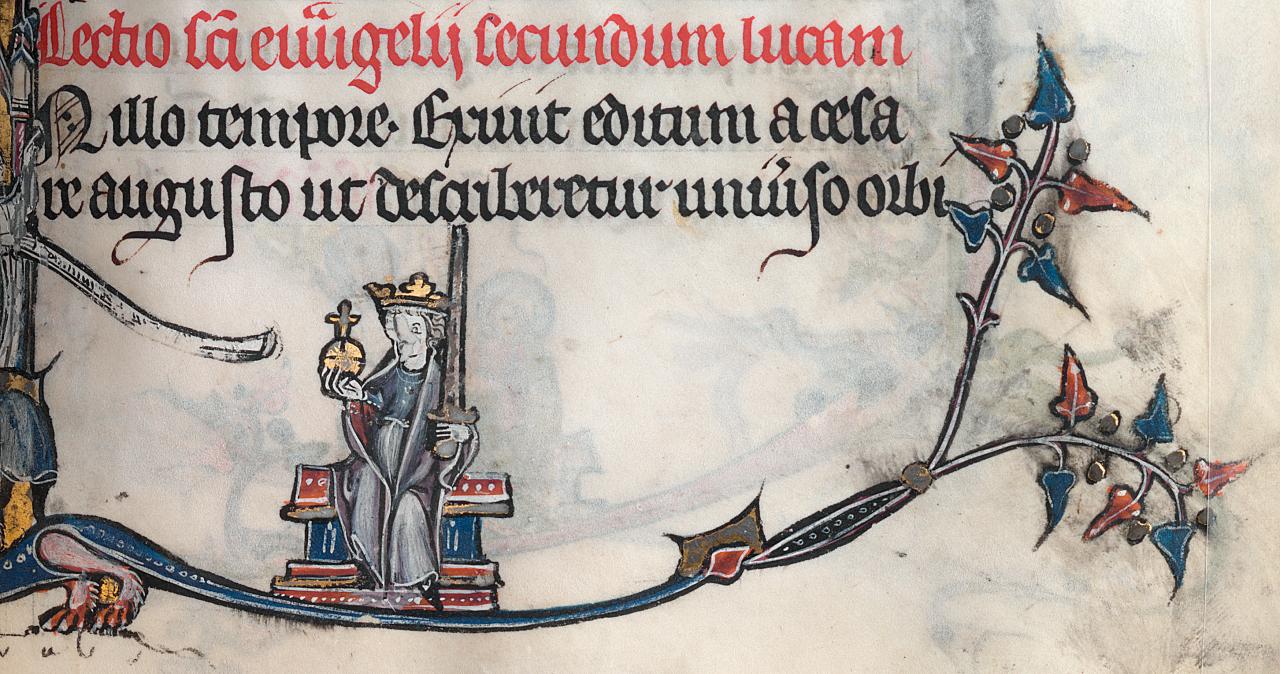 Lectio sc̄i euu̅igelij secundum lucam
N illo tempore. Exiuit edictum a cesa
re augusto ut describeretur uniu̅so orbi